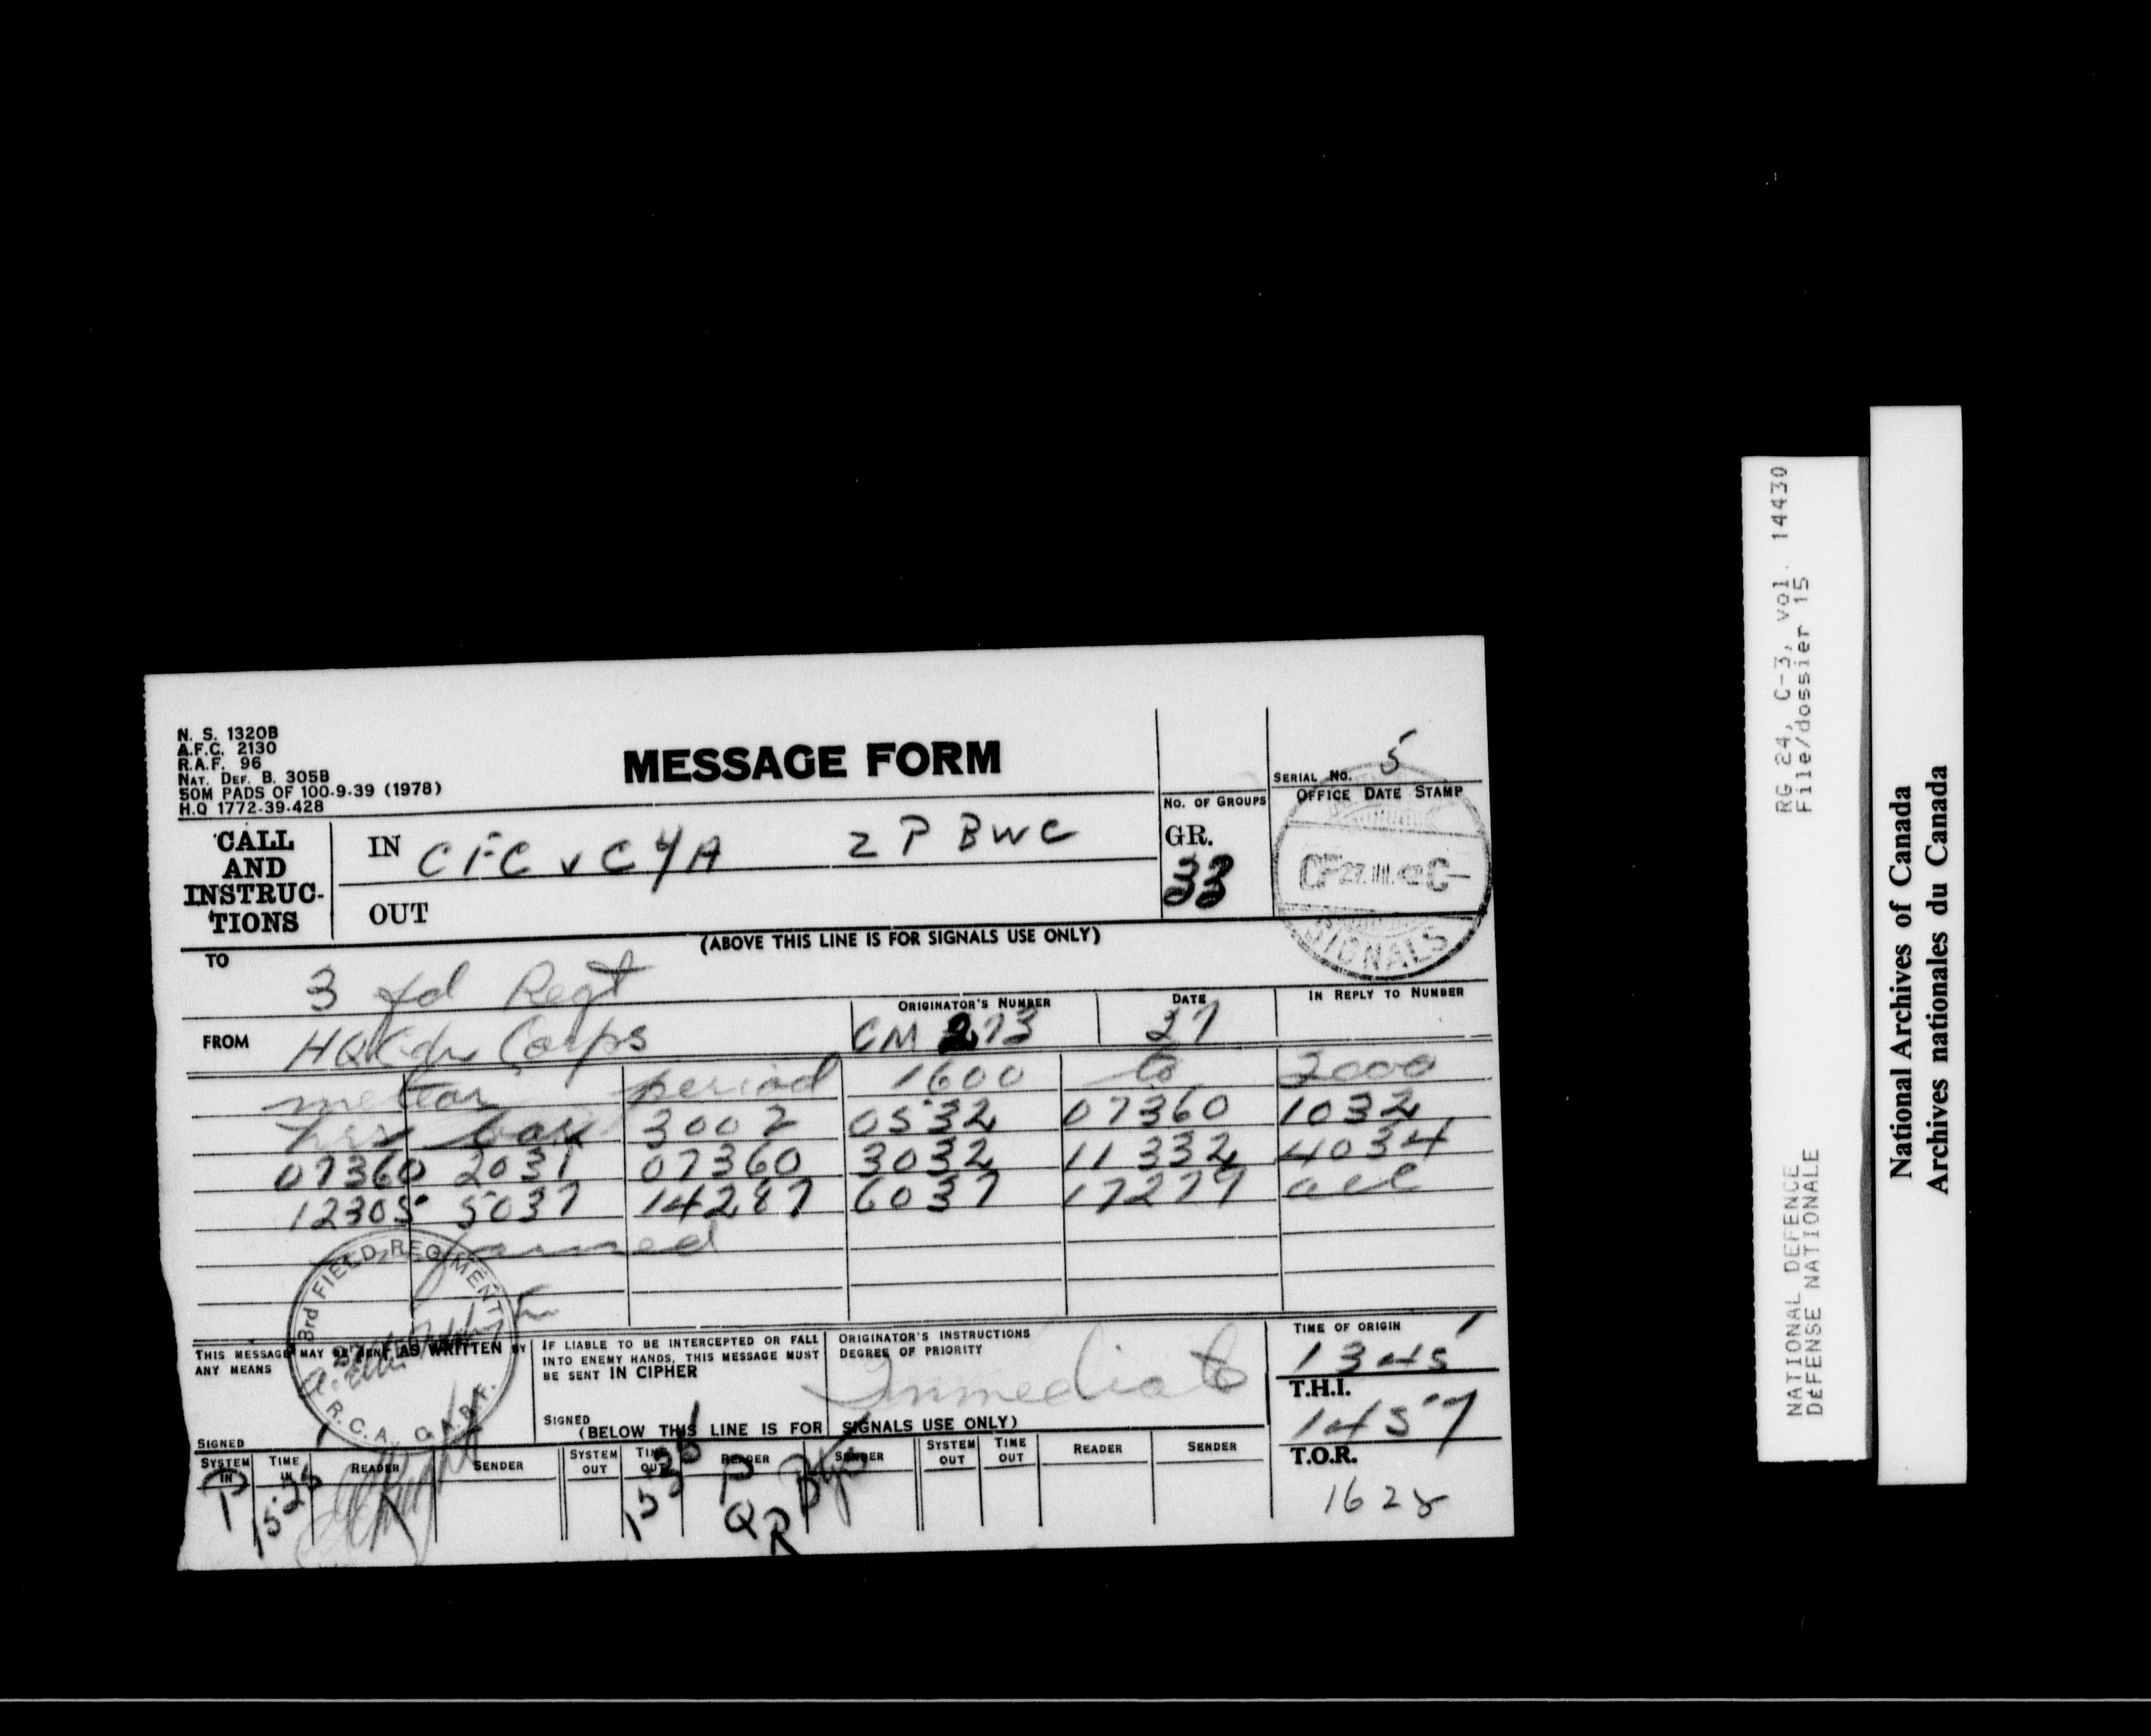 N. S. 1320B
A.F.C. 2130
R.A.F. 96
NAT. DEF. B. 305B
50M PADS OF 100-9-39 (1978)
H.Q 1772-39-428
MESSAGE FORM
SERIAL NO. 5
CALL AND INSTRUC-TIONS
IN CFC v C4A 2 P BWC
OUT
NO. OF GROUPS
GR.
33
OFFICE DATE STAMP
CF 27.III.42 C-
SIGNALS
(ABOVE THIS LINE IS FOR SIGNALS USE ONLY)
TO 3 fd Regt
FROM HQ Cdn Corps
ORIGINATOR'S NUMBER CM 273
DATE 27
IN REPLY TO NUMBER
meteor period 1600 to 2000
hrs bar 3002 0532 07360 1032
07360 2031 07360 3032 11332 4034
12305 5037 14287 6037 17279 all
3rd FIELD REGIMENT
R.C.A. C.A.S.F.
THIS MESSAGE MAY BE SENT AS WRITTEN BY ANY MEANS
SIGNED
IF LIABLE TO BE INTERCEPTED OR FALL INTO ENEMY HANDS, THIS MESSAGE MUST BE SENT IN CIPHER
SIGNED
ORIGINATOR'S INSTRUCTIONS
DEGREE OF PRIORITY
Immediate
TIME OF ORIGIN
1345
T.H.I.
1457
T.O.R.
(BELOW THIS LINE IS FOR SIGNALS USE ONLY)
SYSTEM IN TIME IN READER SENDER SYSTEM OUT TIME OUT READER SENDER SYSTEM OUT TIME OUT READER SENDER
RG 24, C-3, vol. 14430
File/dossier 15
NATIONAL DEFENCE
DÉFENSE NATIONALE
National Archives of Canada
Archives nationales du Canada